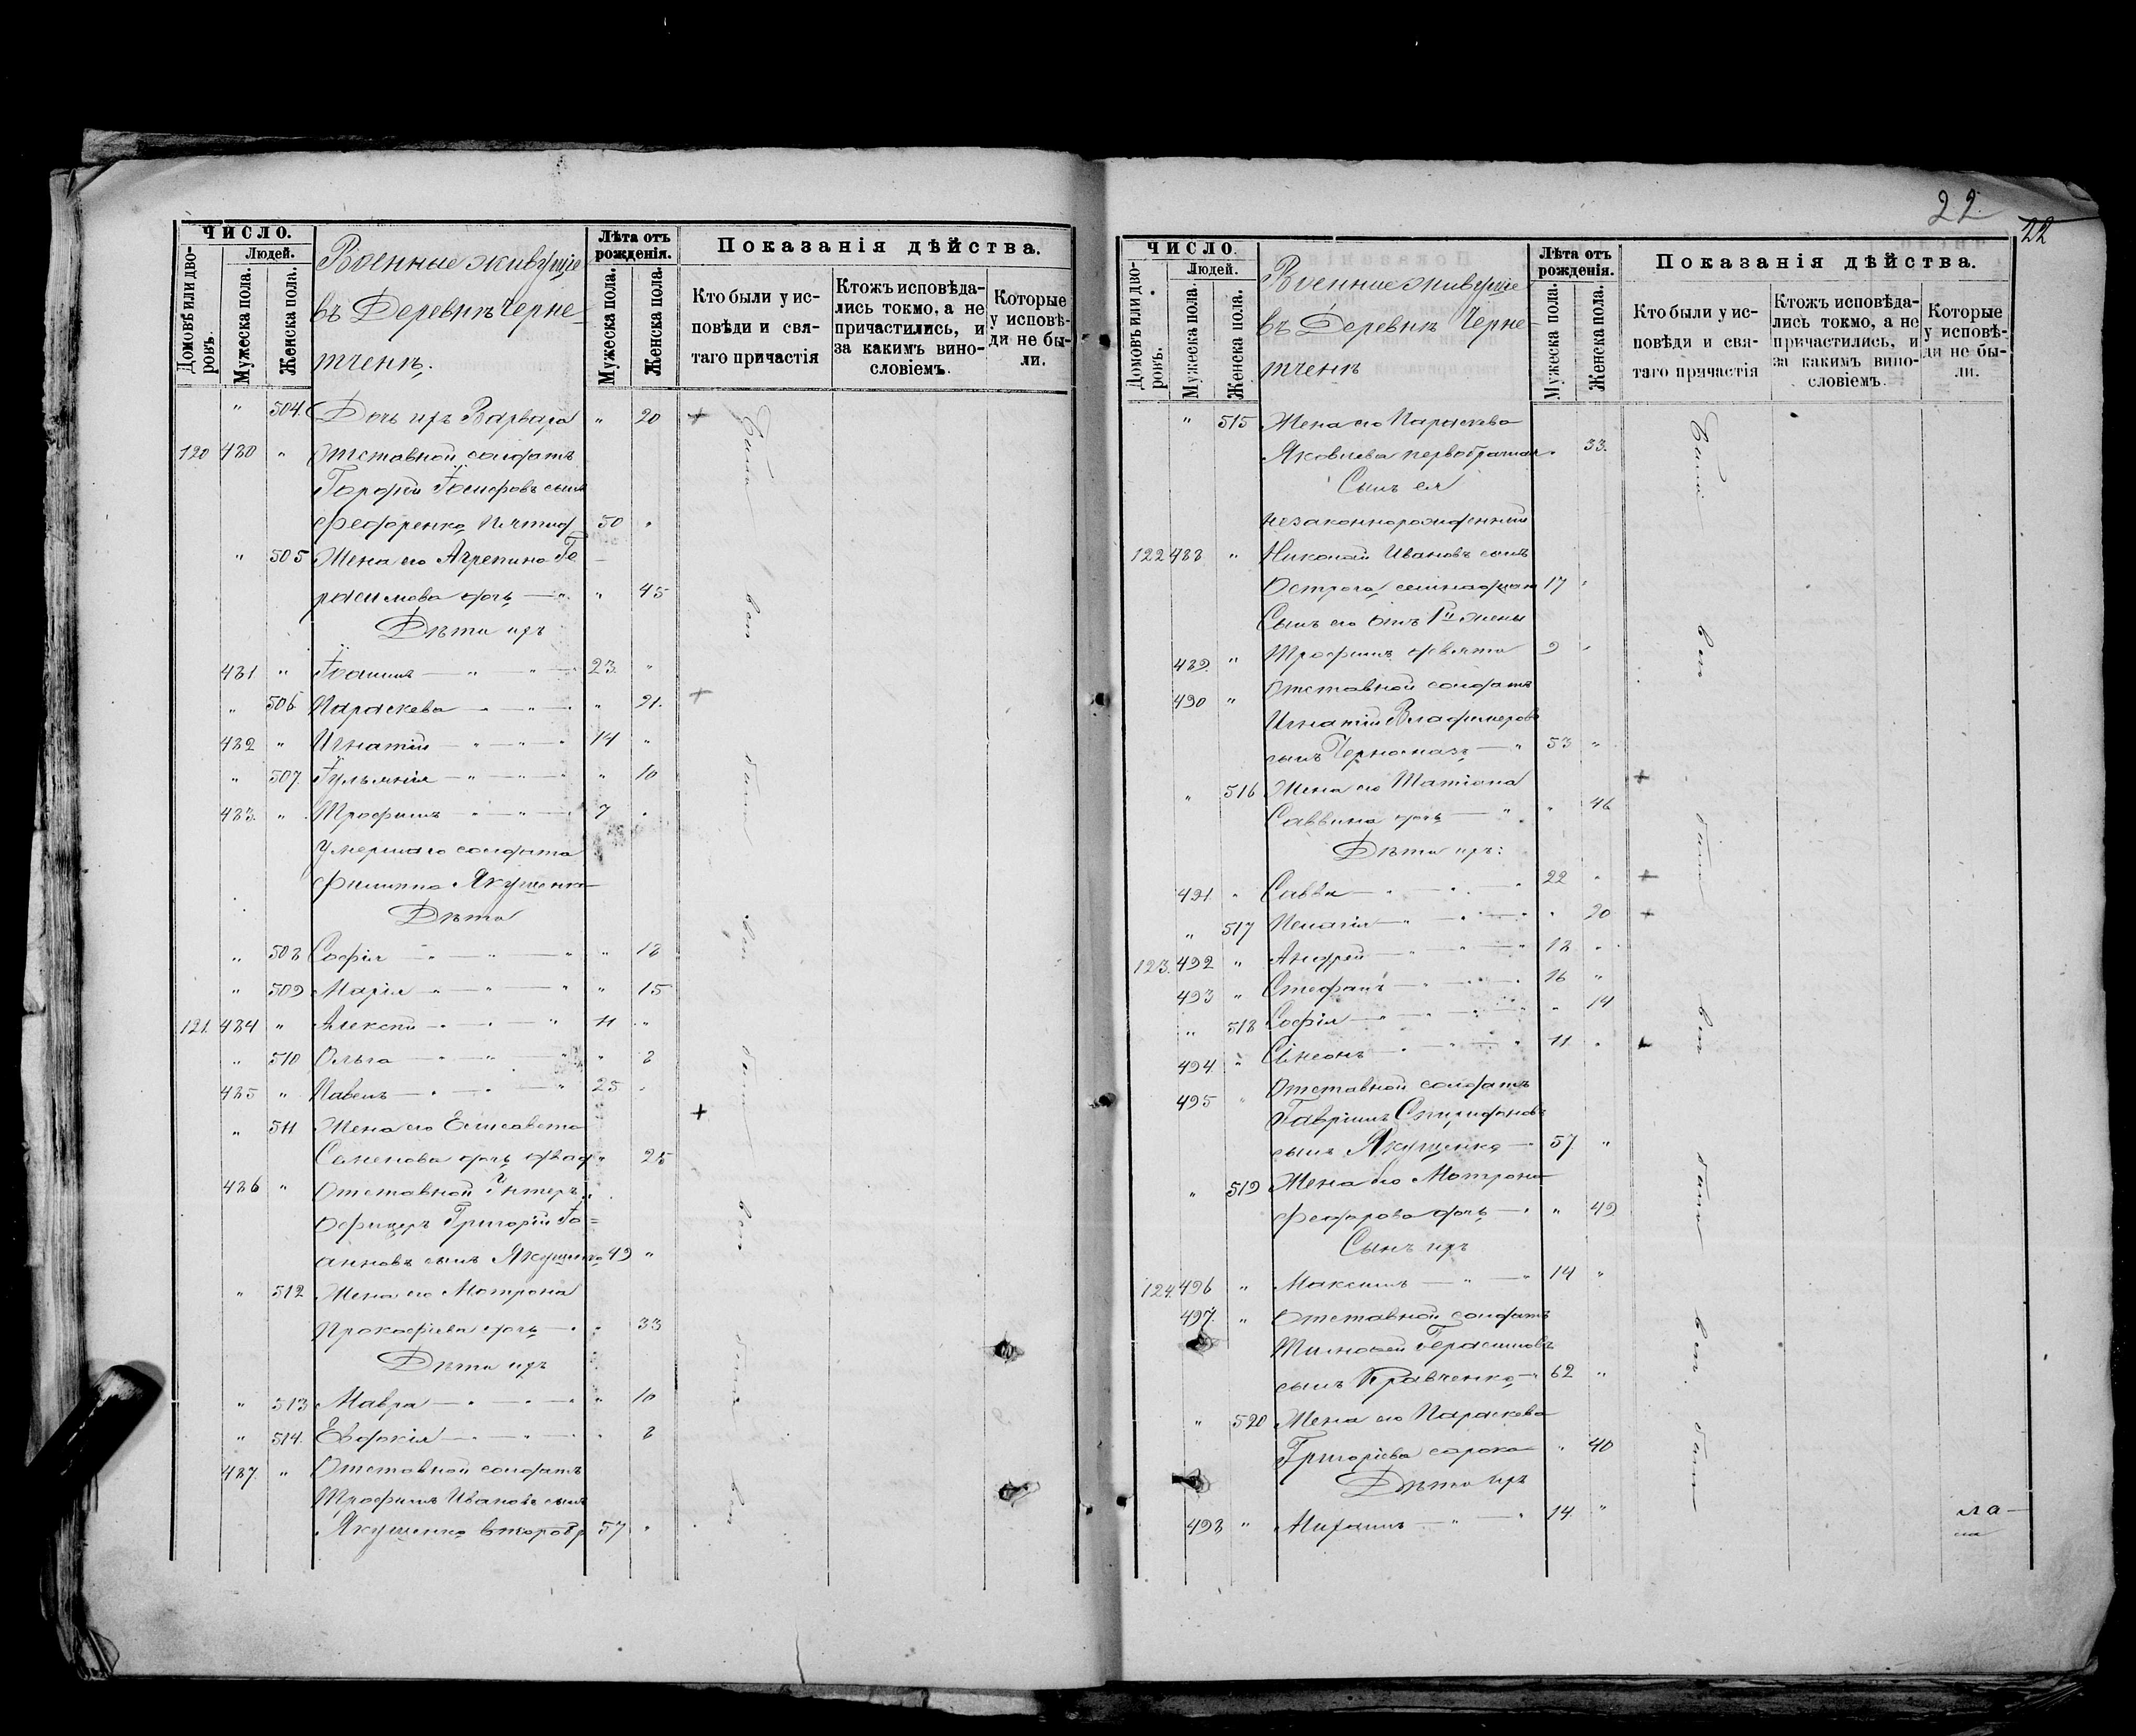 ЧИСЛО.
Людей.
Домовъ или дворовъ.
Мужеска пола.
Женска пола.
Военные живущіе
въ Деревнѣ Черне-
тченѣ.
Лѣта отъ
рожденія.
Мужеска пола.
Женска пола.
Показанія дѣйства.
Кто были у ис-
повѣди и свя-
таго причастія
Ктожъ исповѣда-
лись токмо, а не
причастились, и
за какимъ вино-
словіемъ.
Которые
у исповѣ-
ди не бы-
ли.
" 504 Дочь ихъ Варвара " 20
120 480 " Отставной солдатъ
Іосифовъ сынъ
Федоренко 50 "
" 505 Жена его Агрепина Ге
расимова дочь " 45
Дѣти ихъ
481 " Іоаннъ 23 "
" 506 Параскева " 21.
482 " Игнатій 14 "
" 507 Іульянія " 10
483 " Трофимъ 7 "
Умершаго солдата
Филиппа Якушенка
Дѣти
" 508 Софія " 18
" 509 Марія " 15
121. 484 " Алексѣй 11 "
" 510 Ольга " 8
485 " Павелъ 25 "
" 511 Жена его Елисавета
Семенова дочь "
486 " Отставной Унтеръ
Офицеръ Григорій Іо=
анновъ сынъ Якушенко 49 "
" 512 Жена его Матрона
Прокофіева дочь " 33
Дѣти ихъ
" 513 Мавра " 10
" 514. Евдокія " 8
487. " Отставной солдатъ
Трофимъ Ивановъ сынъ
Якушенко второбр 57 "
Сіи всѣ были всѣ были всѣ были всѣ
22.
22
ЧИСЛО.
Людей.
Домовъ или дворовъ.
Мужеска пола.
Женска пола.
Военные живущіе
въ Деревнѣ Черне-
тченѣ
Лѣта отъ
рожденія.
Мужеска пола.
Женска пола.
Показанія дѣйства.
Кто были у ис-
повѣди и свя-
таго причастія
Ктожъ исповѣда-
лись токмо, а не
причастились, и
за какимъ вино-
словіемъ.
Которые
у исповѣ-
ди не бы-
ли.
" 515 Жена его Параскева
Яковлева первобрачная " 33.
Сынъ ея
незаконнорожденный
122 488 " Николай Ивановъ сынъ
17 "
Сынъ его отъ 1й жены
489. " Трофимъ девяти 9 "
490 " Отставной солдатъ
Игнатій Владимеровъ
сынъ Черномазъ 53 "
" 516 Жена его Татіана
Саввина дочь " 46
Дѣти ихъ:
491. " Савва 22 "
" 517 Пелагія " 20
123. 492 " Андрей 18 "
493 " Стефанъ 16 "
" 518 Софія " 14
494. " Сімеонъ 11. "
495 " Отставной солдатъ
Гавріилъ Спиридоновъ
сынъ Якушенко 57. "
" 519 Жена его Мотрона
Федорова дочь " 49
Сынъ ихъ
124. 496 " Максимъ 14 "
497. " Отставной солдатъ
Тимофей Герасимовъ
сынъ Кравченко 62 "
" 520 Жена его Параскева
Григоріева сорока " 40
Дѣти ихъ
498 " Михаилъ 14. "
Сіи всѣ были всѣ были всѣ были